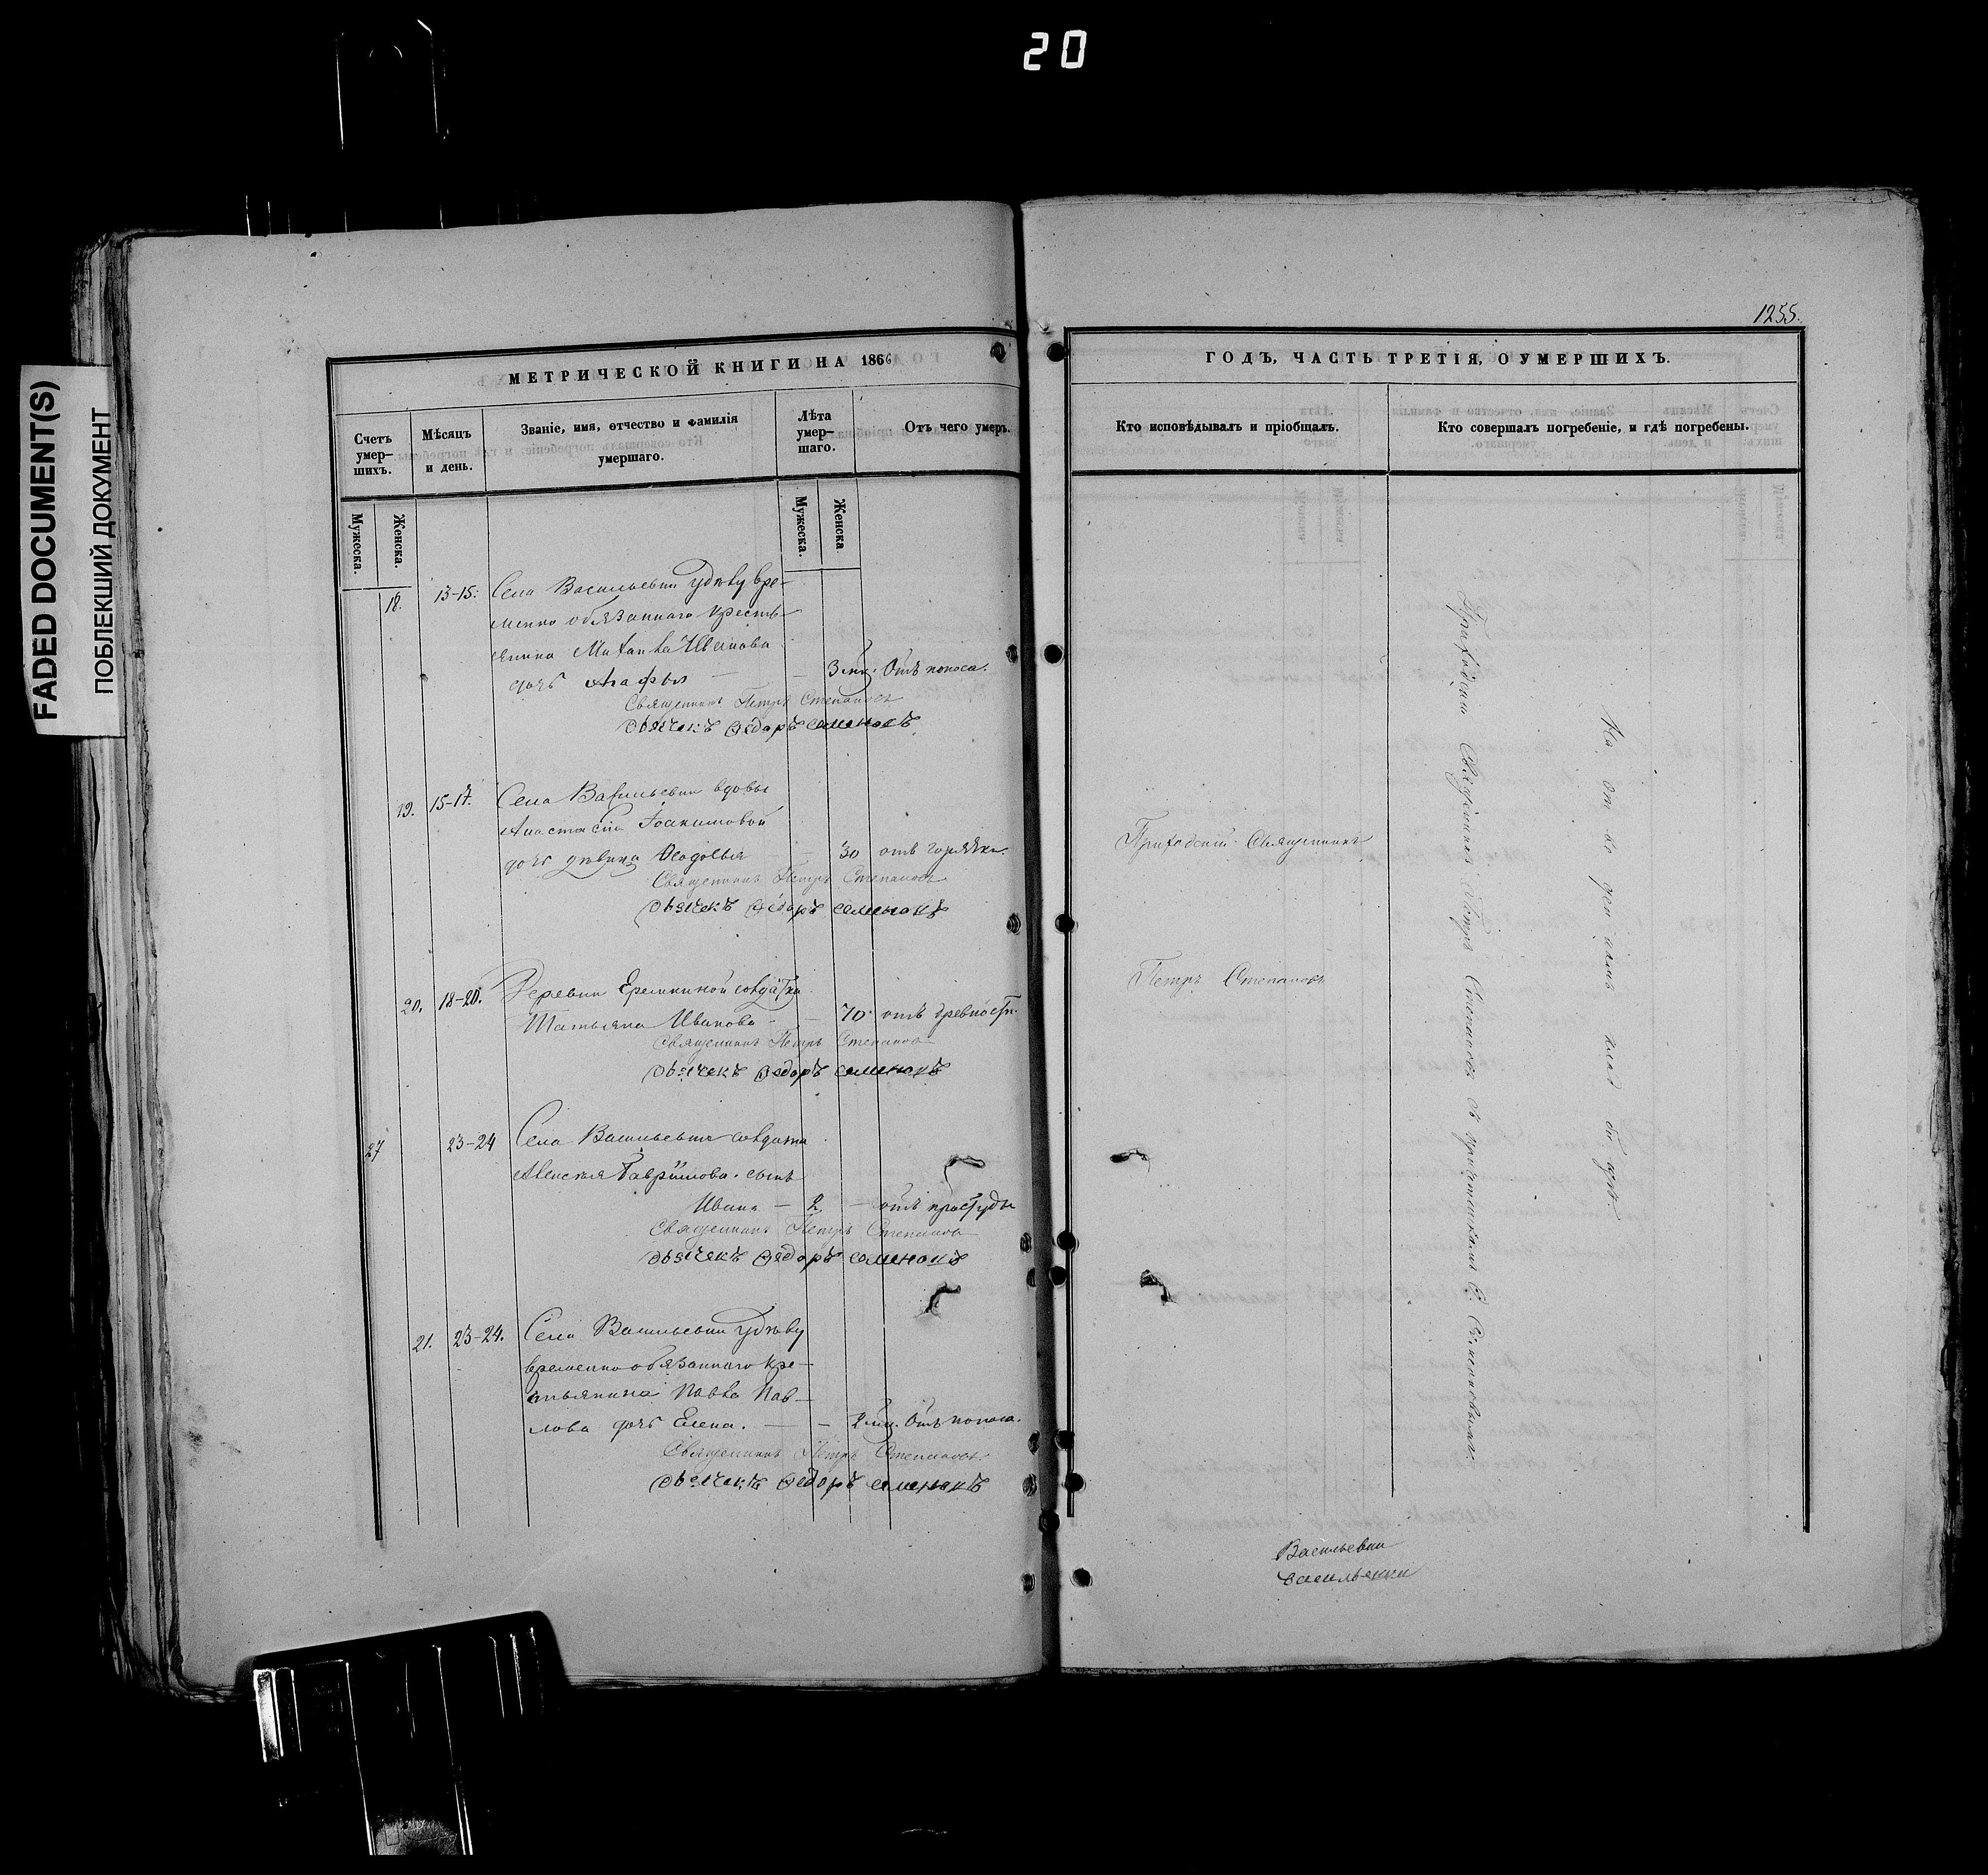 20
FADED DOCUMENT(S)
ПОБЛЕКШИЙ ДОКУМЕНТ
МЕТРИЧЕСКОЙ КНИГИ НА 1866
Счетъ умер–шихъ.
Мѣсяцъ и день.
Званіе, имя, отчество и фамилія умершаго.
Лѣта умер–шаго.
Отъ чего умеръ.
Мужеска.
Женска.
Мужеска.
Женска
18. 13-15. Села Васильевки вре-
менно обязаннаго кресть-
янина Иванова
дочь Агафья — — 3 мц. Отъ поноса.
Священникъ Петръ Степановъ
Ѳедоръ Семеновъ
19. 15-17. Села Васильевки вдовы
Анастасіи Іоакимовой
дочь дѣвица Ѳеодосья — — 30 отъ горячки.
Священникъ Петръ Степановъ
Ѳедоръ Семеновъ
20. 18-20. Деревни солдатка
Татьяна Иванова — — 70 отъ древности.
Священникъ Петръ Степановъ
Ѳедоръ Семеновъ
27 23-24 Села Васильевки солдата
Алексѣя Гаврилова сынъ
Иванъ — 2 — отъ простуды
Священникъ Петръ Степановъ
Ѳедоръ Семеновъ
21. 23-24. Села Васильевки
временно обязаннаго кре-
стьянина Пав-
лова дочь Елена. — — 2 мц. Отъ поноса.
Священникъ Петръ Степановъ
Ѳедоръ Семеновъ
1255.
ГОДЪ, ЧАСТЬ ТРЕТІЯ, О УМЕРШИХЪ.
Кто исповѣдывалъ и пріобщалъ.
Кто совершалъ погребеніе, и гдѣ погребены.
Приходскій Священникъ
Петръ Степановъ
Приходскій Священникъ Петръ Степановъ съ причетниками
На кладбищѣ.
Васильевки
Васильевки